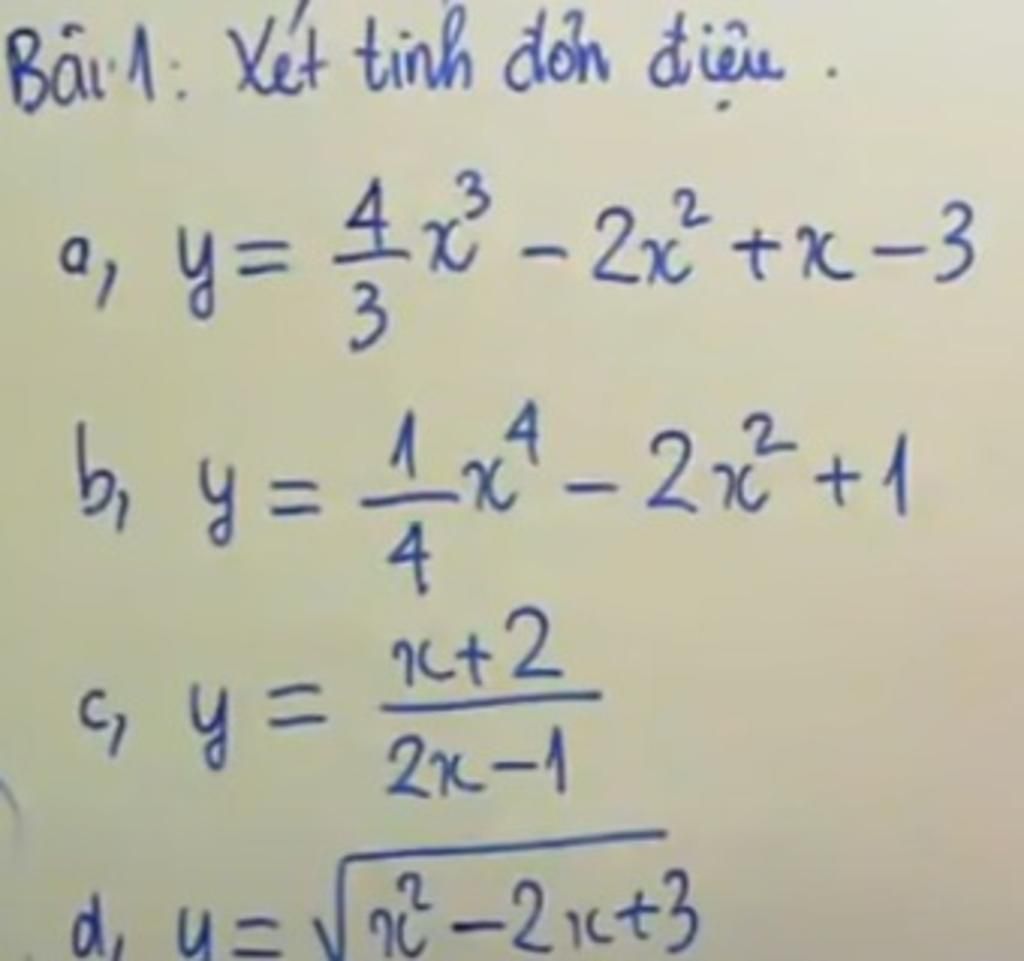 Bài 1: Xét tính đơn điệu.
a, y = \frac{4}{3}x^3 - 2x^2 + x - 3
b, y = \frac{1}{4}x^4 - 2x^2 + 1
c, y = \frac{x+2}{2x-1}
d, y = \sqrt{x^2 - 2x + 3}